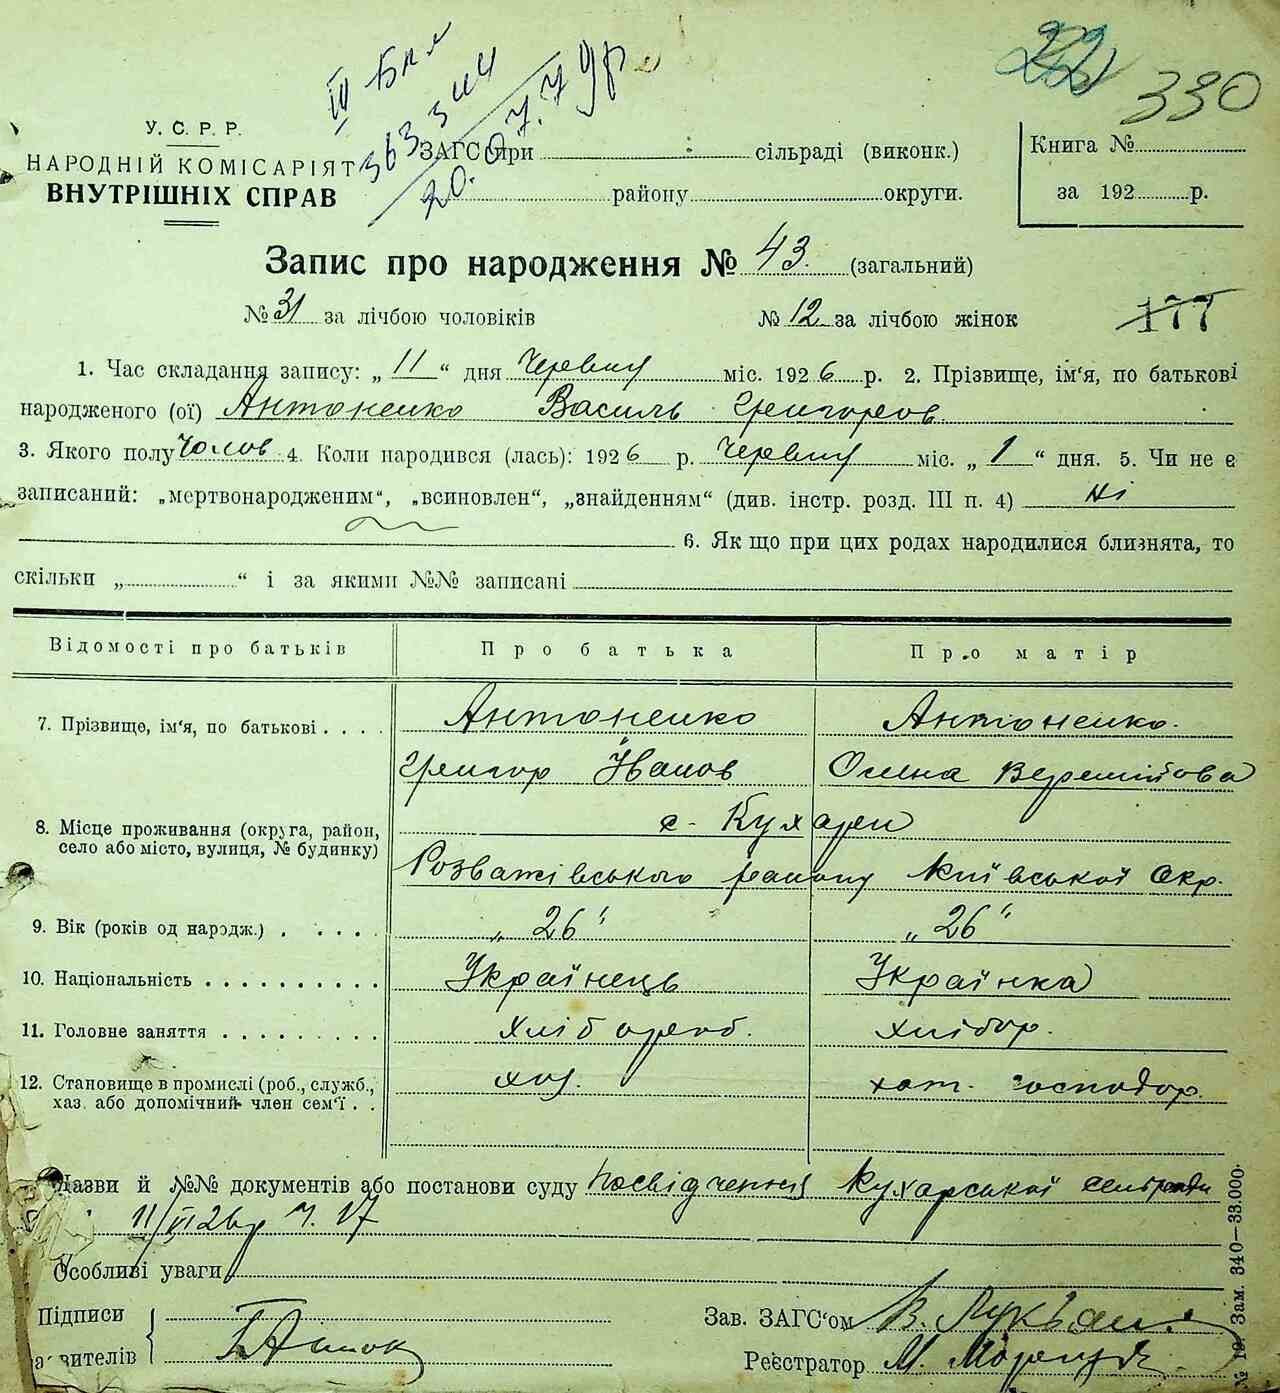 330
У. С. Р. Р.
НАРОДНІЙ КОМІСАРІЯТ
ВНУТРІШНІХ СПРАВ
ЗАГС при сільраді (виконк.)
району округи.
Книга №
за 192 р.
Запис про народження № 43. (загальний)
№ 31 за лічбою чоловіків № 12 за лічбою жінок
177
1. Час складання запису: „ 11 “ дня Червня міс. 1926 р. 2. Прізвище, ім'я, по батькові
народженого (ої) Антоненко Василь Григоров.
3. Якого полу Чолов 4. Коли народився (лась): 1926 р. Червня міс. „ 1 “ дня. 5. Чи не є
записаний: „мертвонародженим“, „всиновлен“, „знайденням“ (див. інстр. розд. III п. 4) Ні
6. Як що при цих родах народилися близнята, то
скільки „ “ і за якими №№ записані
Відомості про батьків Про батька Про матір
7. Прізвище, ім'я, по батькові . . . . Антоненко Антоненко.
Григор Іванов Олена
8. Місце проживання (округа, район, село або місто, вулиця, № будинку) с. Кухари
Розважівського району Київської Окр.
9. Вік (років од народж.) . . . . . „ 26 “ „ 26 “
10. Національність . . . . . . . . . . Українець Українка
11. Головне заняття . . . . . . . . . хлібороб. хлібор.
12. Становище в промислі (роб., служб., хат. господор.
хаз. або допомічний член сем'ї . .
Назви й №№ документів або постанови суду Посвідчення Кухарської сельради
11/VI 26 р ч. 17
Особливі уваги
Підписи
Зав. ЗАГС'ом В.
явителів
Реєстратор М.
№ 19. Зам. 340—33.000.